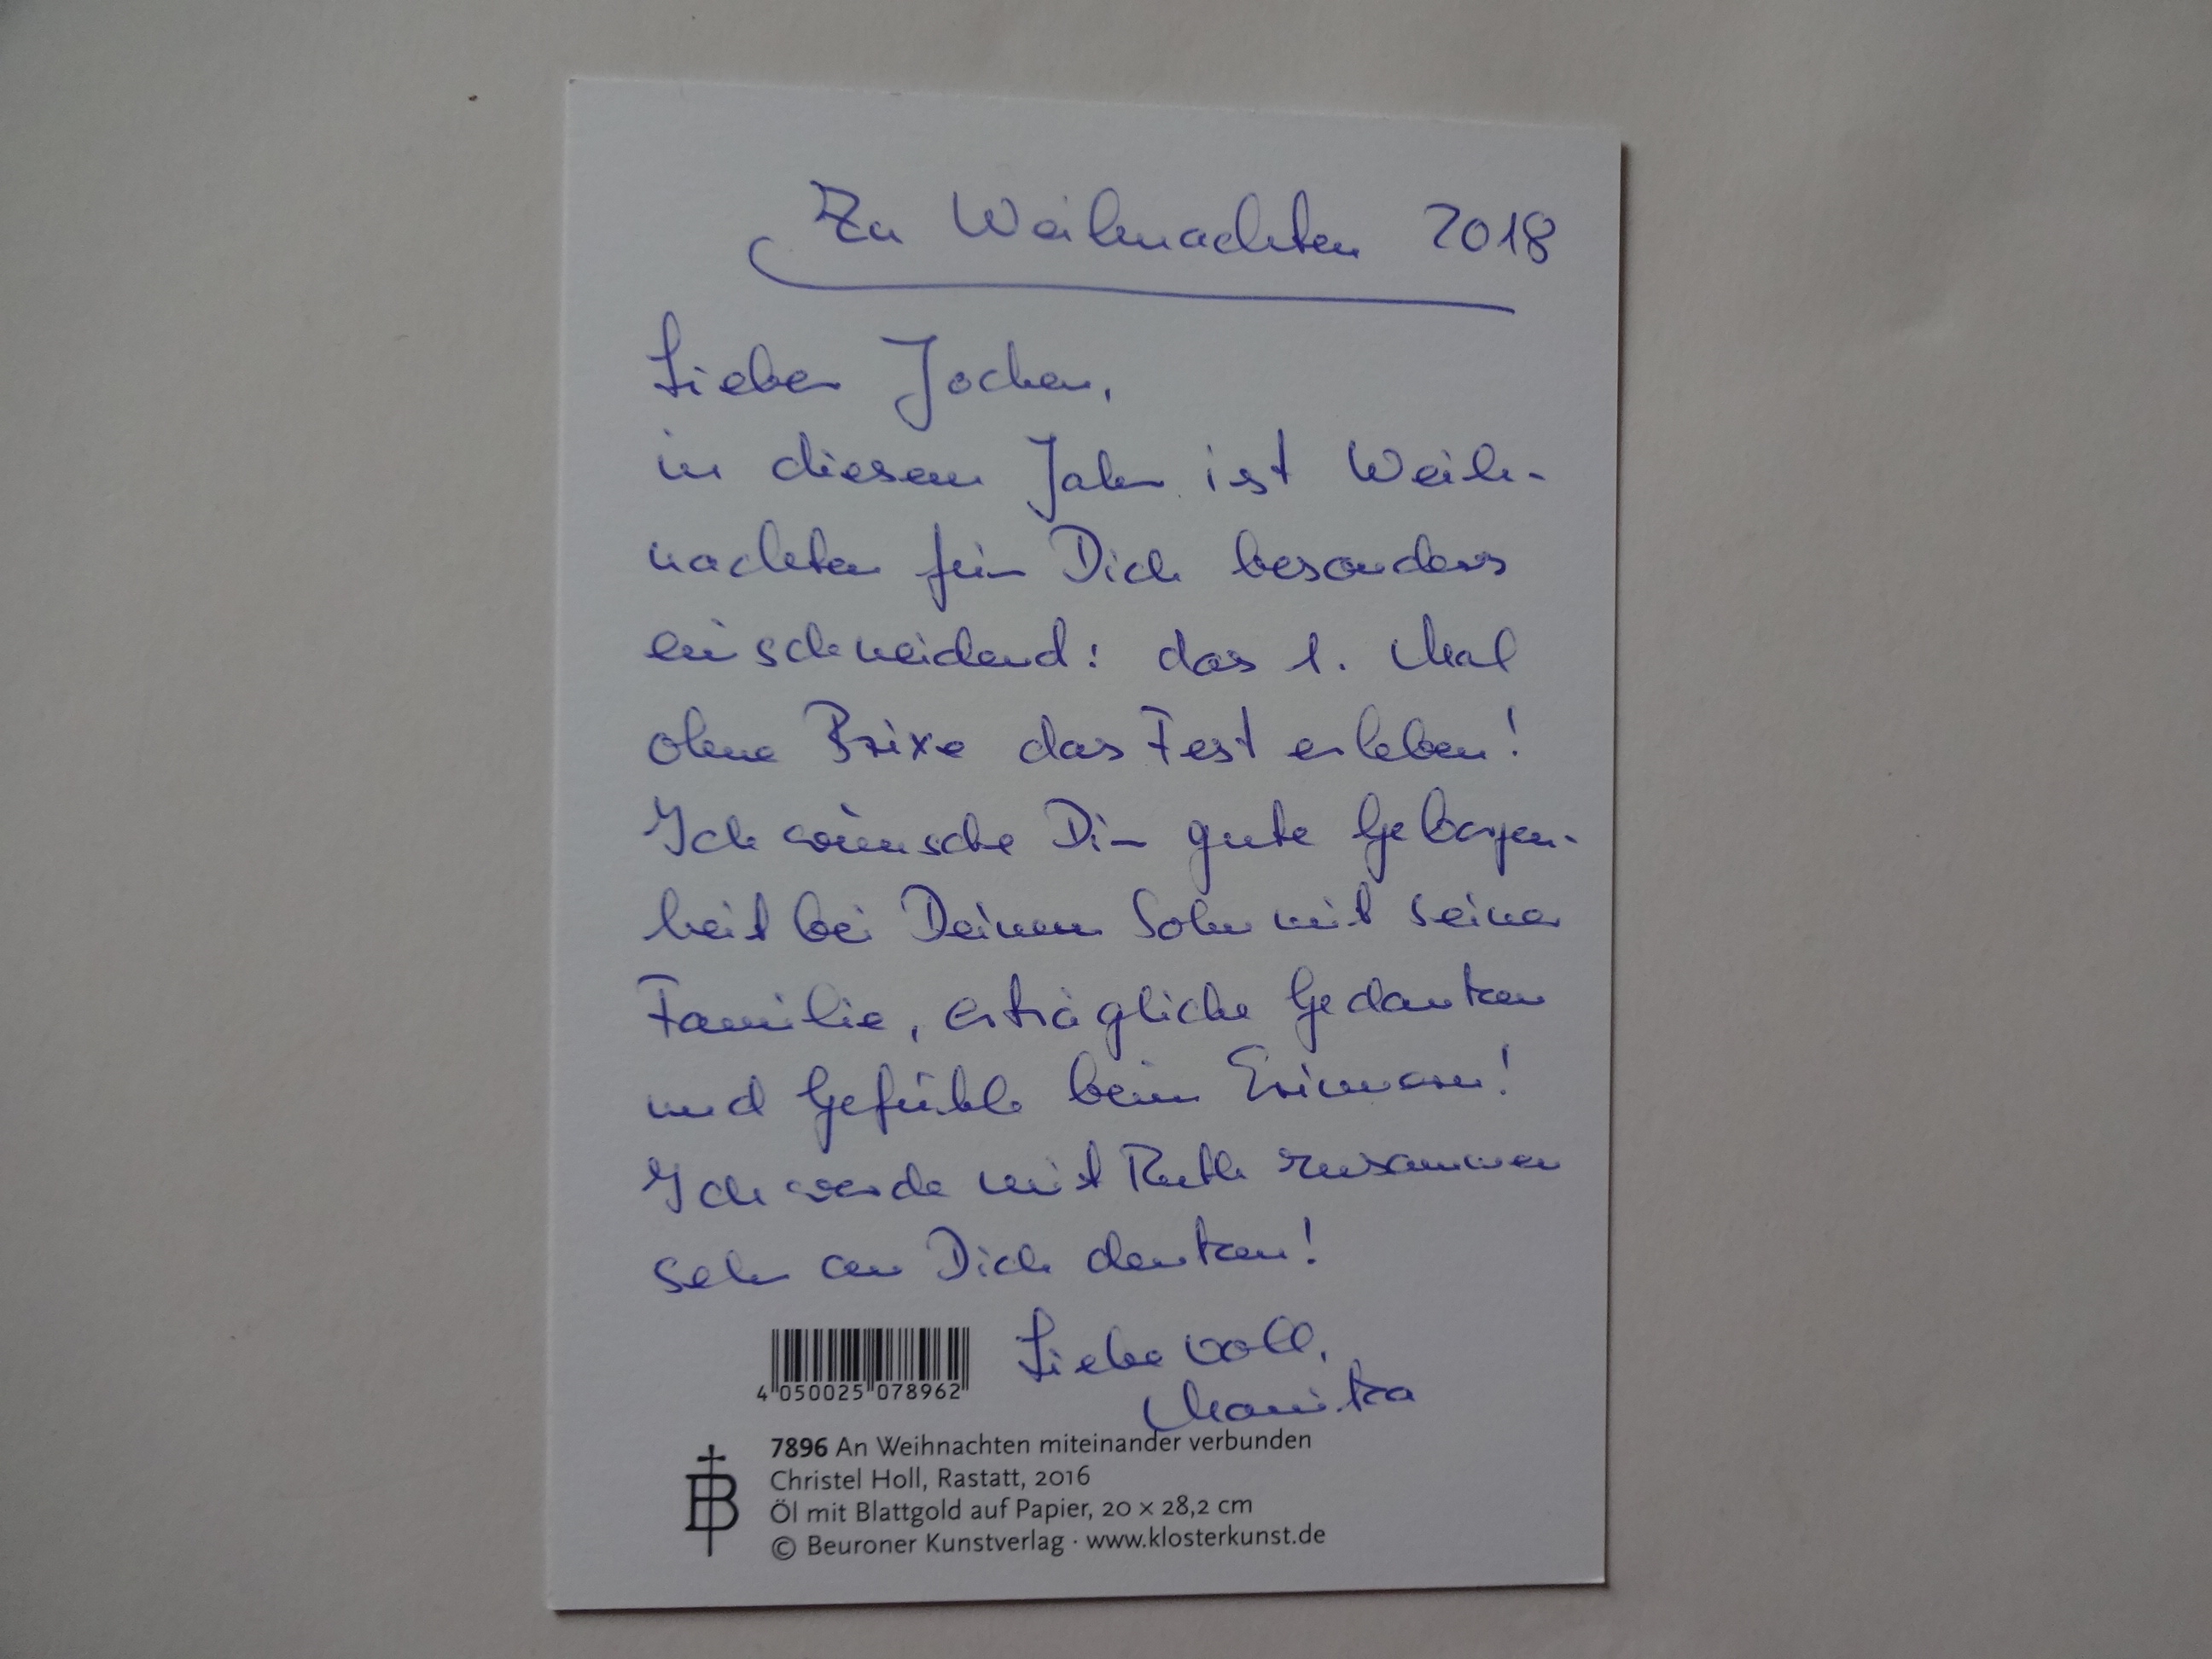 Zu Weihnachten 2018
Lieber Jochen,
in diesem Jahr ist Weih-
nachten für Dich besonders
einschneidend: das 1. Mal
ohne Brixe das Fest erleben!
Ich wünsche Dir gute Geborgen-
heit bei Deinem Sohn mit seiner
Familie, erträgliche Gedanken
und Gefühle beim Erinnern!
Ich werde mit Ruth zusammen
sehr an Dich denken!
Liebevoll,
Monika
4 050025 078962
7896 An Weihnachten miteinander verbunden
Christel Holl, Rastatt, 2016
Öl mit Blattgold auf Papier, 20 x 28,2 cm
© Beuroner Kunstverlag · www.klosterkunst.de